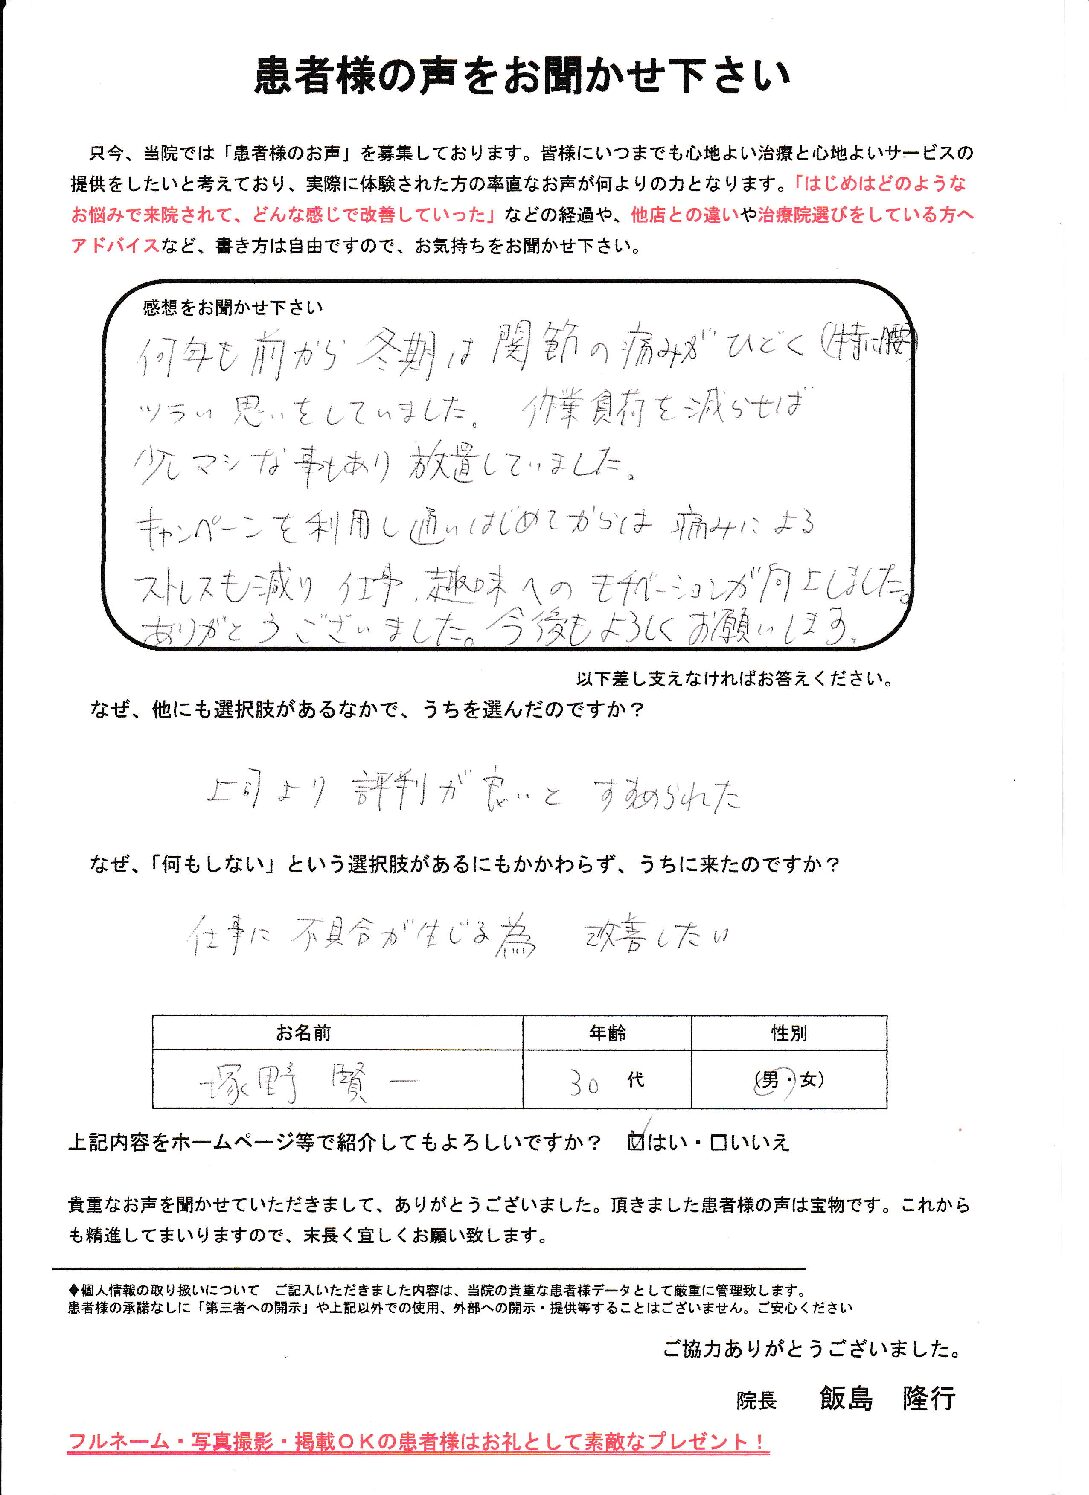 患者様の声をお聞かせ下さい
只今、当院では「患者様のお声」を募集しております。皆様にいつまでも心地よい治療と心地よいサービスの
提供をしたいと考えており、実際に体験された方の率直なお声が何よりの力となります。「はじめはどのような
お悩みで来院されて、どんな感じで改善していった」などの経過や、他店との違いや治療院選びをしている方へ
アドバイスなど、書き方は自由ですので、お気持ちをお聞かせ下さい。
感想をお聞かせ下さい
何年も前から冬期は関節の痛みがひどく(特に腰)
ツラい思いをしていました。作業負荷を減らせば
少しマシな事もあり放置していました。
キャンペーンを利用し通いはじめてからは痛みによる
ストレスも減り仕事、趣味へのモチベーションが向上しました。
ありがとうございました。今後もよろしくお願いします。
以下差し支えなければお答えください。
なぜ、他にも選択肢があるなかで、うちを選んだのですか？
上司より評判が良いとすすめられた
なぜ、「何もしない」という選択肢があるにもかかわらず、うちに来たのですか？
仕事に不具合が生じる為 改善したい
お名前 年齢 性別
塚野 賢一 30 代 (男・女)
上記内容をホームページ等で紹介してもよろしいですか？ ☑はい・□いいえ
貴重なお声を聞かせていただきまして、ありがとうございました。頂きました患者様の声は宝物です。これから
も精進してまいりますので、末長く宜しくお願い致します。
◆個人情報の取り扱いについて ご記入いただきました内容は、当院の貴重な患者様データとして厳重に管理致します。
患者様の承諾なしに「第三者への開示」や上記以外での使用、外部への開示・提供等することはございません。ご安心ください
ご協力ありがとうございました。
院長 飯島 隆行
フルネーム・写真撮影・掲載OKの患者様はお礼として素敵なプレゼント！